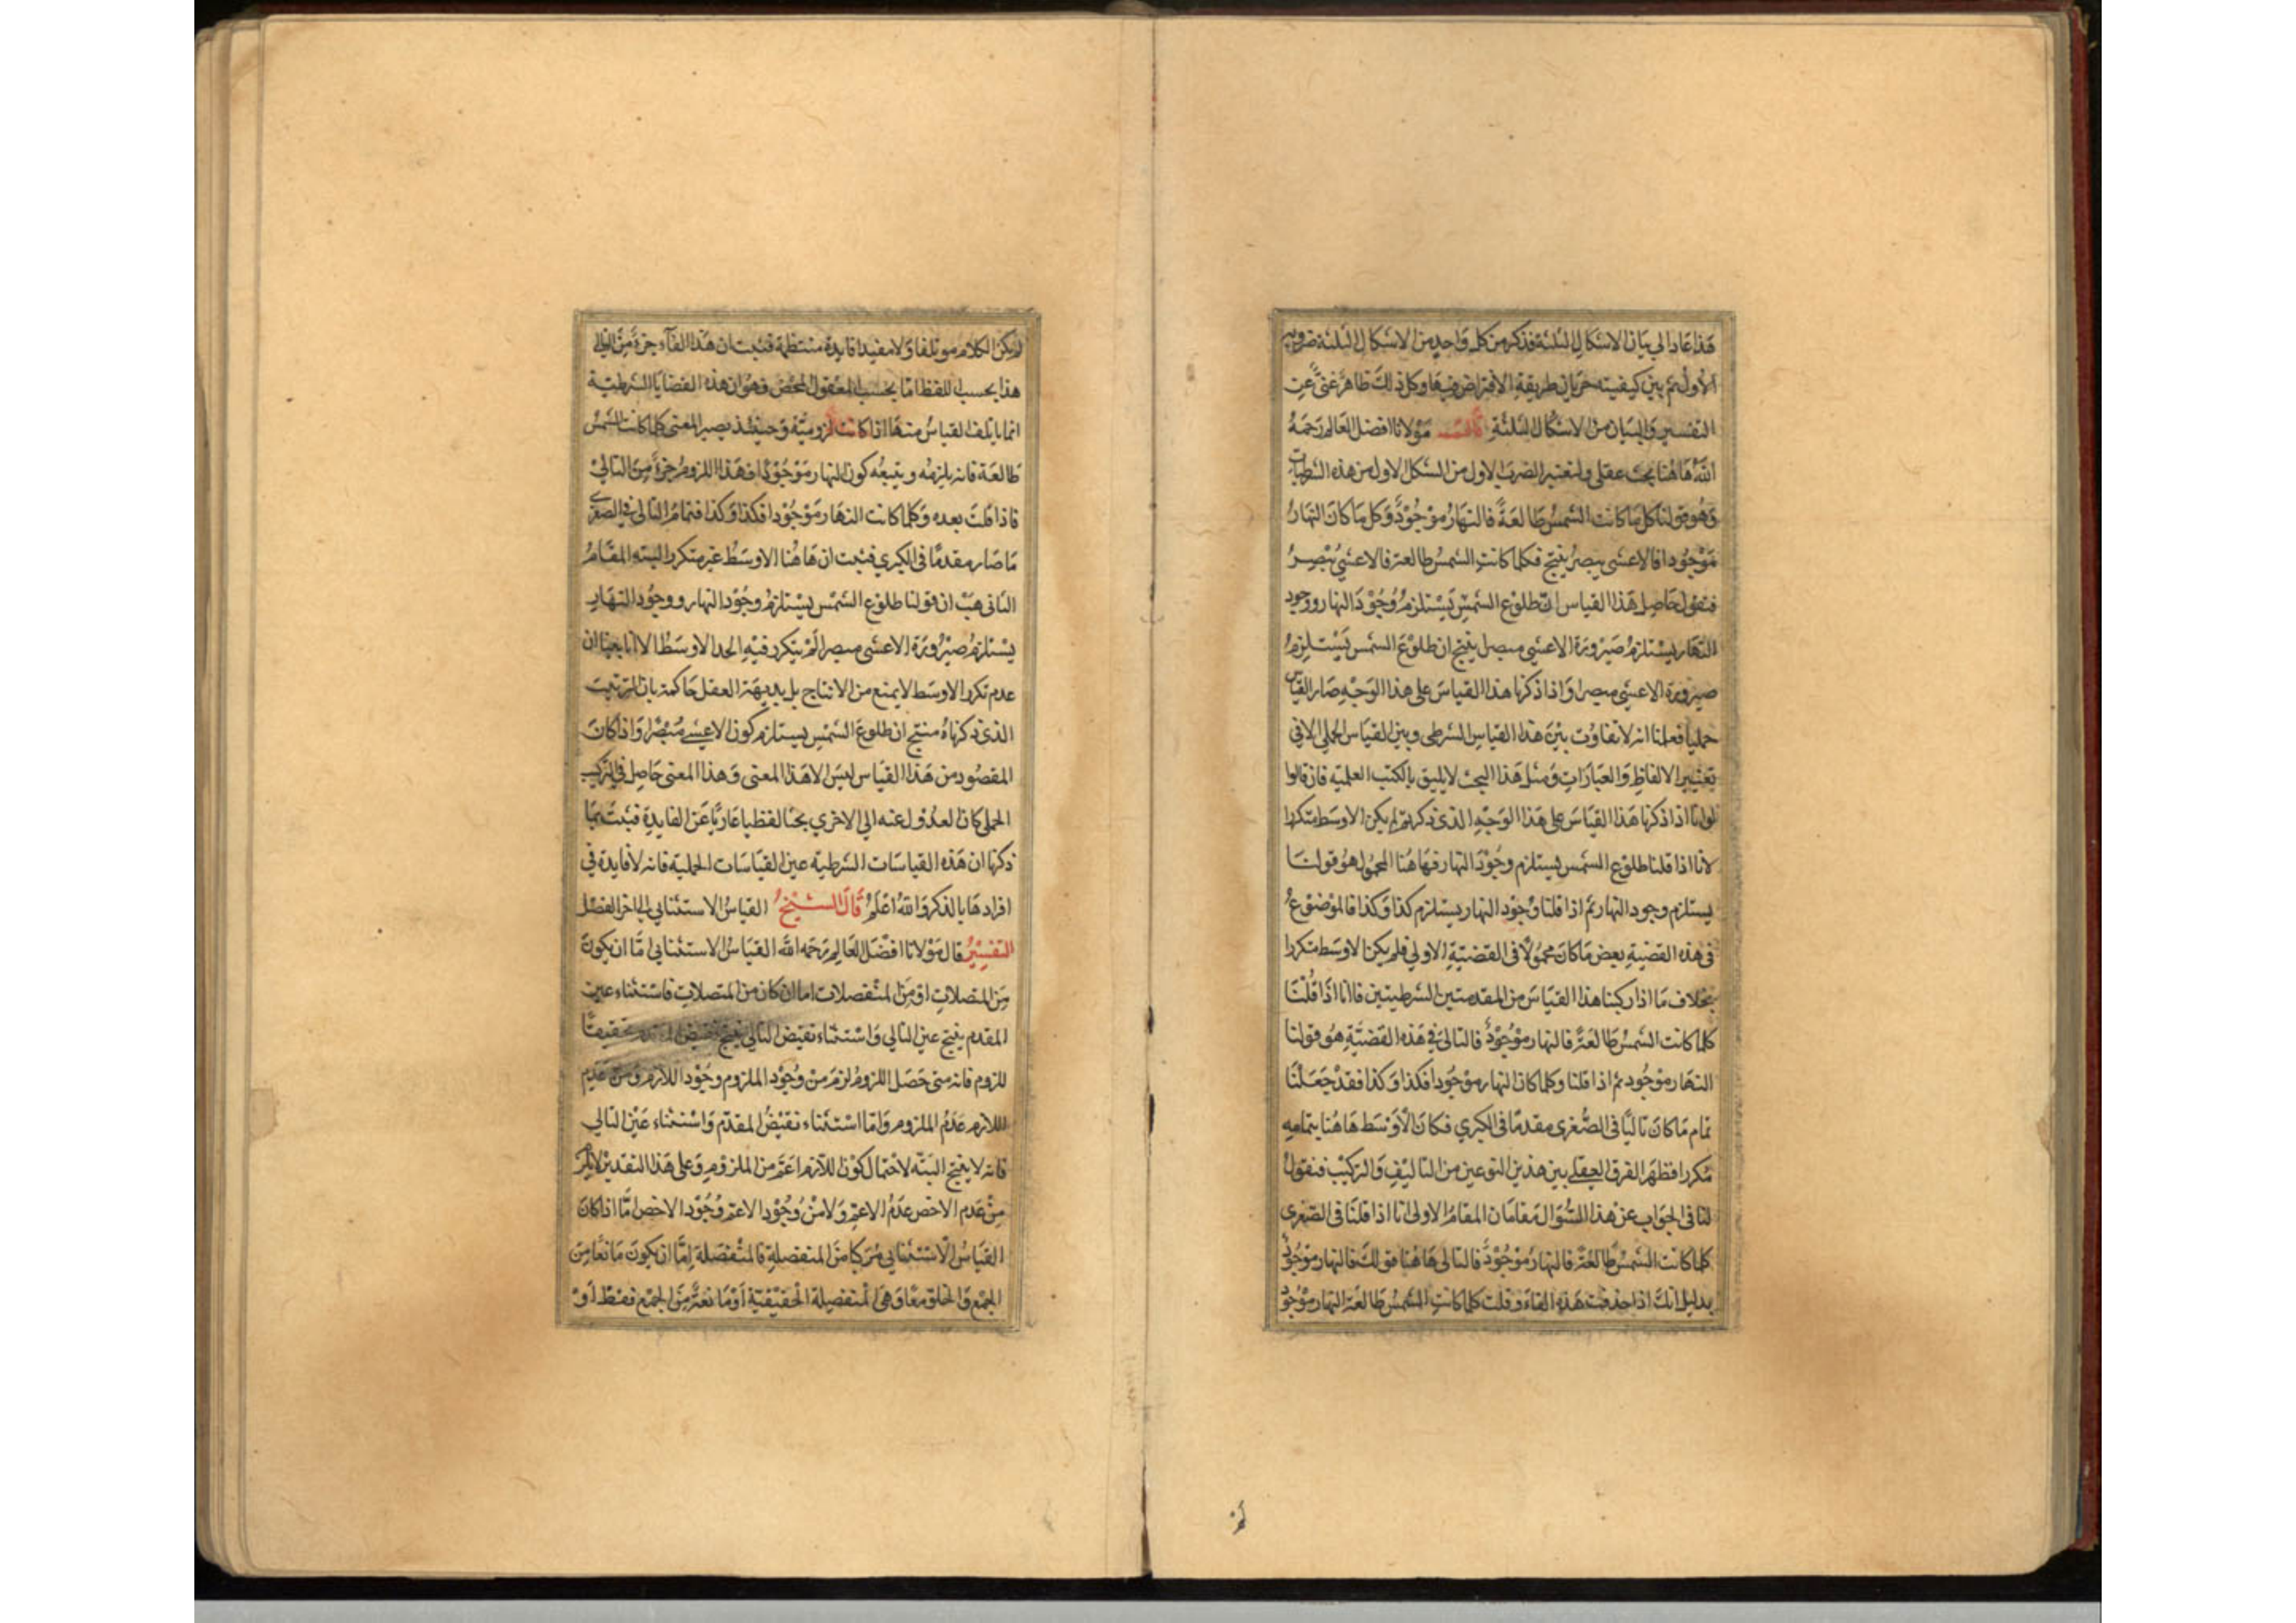 هذا عاد الى بيان الاشكال الثلثة فذكر من كل واحد من الاشكال الثلثة ضروبه
الاول ثم بين كيفيته جريان طريقة الافتراض فيها وكل ذلك ظاهر غنى عن
التفسير والبيان من الاشكال الثلثة قال مولانا افضل العالم رحمه
الله هاهنا بحث عقلى ولنعتبر الضرب الاول من الشكل الاول من هذه الشرطيات
وهو قولنا كل ما كانت الشمس طالعة فالنهار موجود وكل ما كان النهار
موجودا فالاعشى يبصر ينتج فكلما كانت الشمس طالعة فالاعشى يبصر
فنقول حاصل هذا القياس ان طلوع الشمس يستلزم وجود النهار ووجود
النهار يستلزم صيرورة الاعشى مبصرا ينتج ان طلوع الشمس يستلزم
صيرورة الاعشى مبصرا واذا ذكرنا هذا القياس على هذا الوجه صار القياس
حمليا فعلمنا انه لا تفاوت بين هذا القياس الشرطى وبين القياس الحملى الا فى
تغيير الالفاظ والعبارات ومثل هذا البحث لا يليق بالكتب العلمية فان قالوا
اذا ذكرنا هذا القياس على هذا الوجه الذى ذكرتم لم يكن الاوسط متكررا
لانا اذا قلنا طلوع الشمس يستلزم وجود النهار فهاهنا المحمول هو قولنا
يستلزم وجود النهار ثم اذا قلنا وجود النهار يستلزم كذا وكذا فالموضوع
فى هذه القضية بعض ما كان محمولا فى القضية الاولى فلم يكن الاوسط متكررا
بخلاف ما اذا ركبنا هذا القياس من المقدمتين الشرطيتين فانا اذا قلنا
كلما كانت الشمس طالعة فالنهار موجود فالتالى فى هذه القضية هو قولنا
النهار موجود ثم اذا قلنا وكلما كان النهار موجودا فكذا وكذا فقد جعلنا
تمام ما كان تاليا فى الصغرى مقدما فى الكبرى فكان الاوسط هاهنا بتمامه
مكررا فظهر الفرق العقلى بين هذين النوعين من التاليف والتركيب فنقول
لنا فى الجواب عن هذا السؤال مقامان المقام الاولى انا اذا قلنا فى الصغرى
كلما كانت الشمس طالعة فالنهار موجود فالتالى هاهنا قولك فالنهار موجود
بدليل انك اذا حذفت هذه الفاء وقلت كلما كانت الشمس طالعة النهار موجود
لم
لم يكن الكلام موتلفا ولا مفيدا فايدة منتظمة فثبت ان هذا الفآء جزء من التالى
هذا بحسب اللفظ اما بحسب المعقول المحض فهو ان هذه القضايا الشرطية
انما ياتلف القياس منها اذا كانت لزومية وحينئذ يصير المعنى كلما كانت الشمس
طالعة فانه يلزمه ويتبعه كون النهار موجودا فهذا اللزوم جزء من التالى
فاذا قلت بعده وكلما كانت النهار موجودا فكذا وكذا فتمام التالى فى الصغرى
ما صار مقدما فى الكبرى فثبت ان هاهنا الاوسط غير متكرر البته المقام
الثانى هب ان قولنا طلوع الشمس يستلزم وجود النهار ووجود النهار
يستلزم صيرورة الاعشى مبصرا لم يتكرر فيه الحد الاوسط الا انا ان
عدم تكرر الاوسط لا يمنع من الانتاج بل بديهة العقل حاكمة بان الترتيب
الذى ذكرناه منتج ان طلوع الشمس يستلزم كون الاعشى مبصرا واذا كان
المقصود من هذا القياس ليس الا هذا المعنى وهذا المعنى حاصل فى التركيب
الحملى كان العدول عنه الى الاخرى بحثا لفظيا عاريا عن الفايدة فثبت بما
ذكرنا ان هذه القياسات الشرطيه عين القياسات الحملية فانه لا فايدة فى
افرادها بالذكر والله اعلم قال الشيخ القياس الاستثنايى الى اخر الفصل
التفسير قال مولانا افضل العالم رحمه الله القياس الاستثنايى اما ان يكون
من المتصلات او من المنفصلات اما ان كان من المتصلات فاستثناء عين
المقدم ينتج عين التالى واستثناء نقيض التالى ينتج نقيض المقدم تحقيقا
للزوم فانه متى حصل اللزوم لزم من وجود الملزوم وجود اللازم ومن عدم
اللازم عدم الملزوم واما استثناء نقيض المقدم واستثناء عين التالى
فانه لا ينتج البته لاحتمال كون اللازم اعم من الملزوم وعلى هذا التقدير لا يلزم
من عدم الاخص عدم الاعم ولا من وجود الاعم وجود الاخص اما اذا كان
القياس الاستثنايى مركبا من المنفصلة فالمنفصلة اما ان يكون مانعا من
الجمع والخلو معا وهى المنفصلة الحقيقية او مانعة من الجمع فقط او